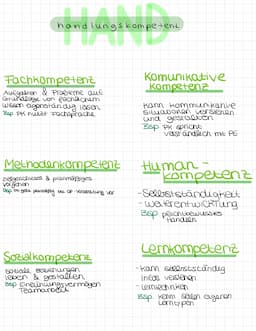 HAND
handlungskompetenz
Fachkompetenz
Aufgaben & Probleme auf
Grundlage von fachlichem
Wissen eigenständig lösen
Bsp PK nutzt Fachsprache
Komunikative
Kompetenz
kann kommunikative
situationen verstehen
und gestalten
Bsp PK spricht
verständlich mit PE
Methodenkompetenz
zielgerichtetes & planmäßiges
vorgehen
Bsp
Human-
kompetenz
- Selbstständigkeit
- weiterentwicklung
Bsp pflichtbewusstes
handeln
Sozialkompetenz
soziale beziehungen
leben & gestalten
Bsp Einfühlungsvermögen
Teamarbeit
Lernkompetenz
- kann selbstständig
infos verstehen
- lerntechniken
Bsp kenn deinen eigenen
lerntypen